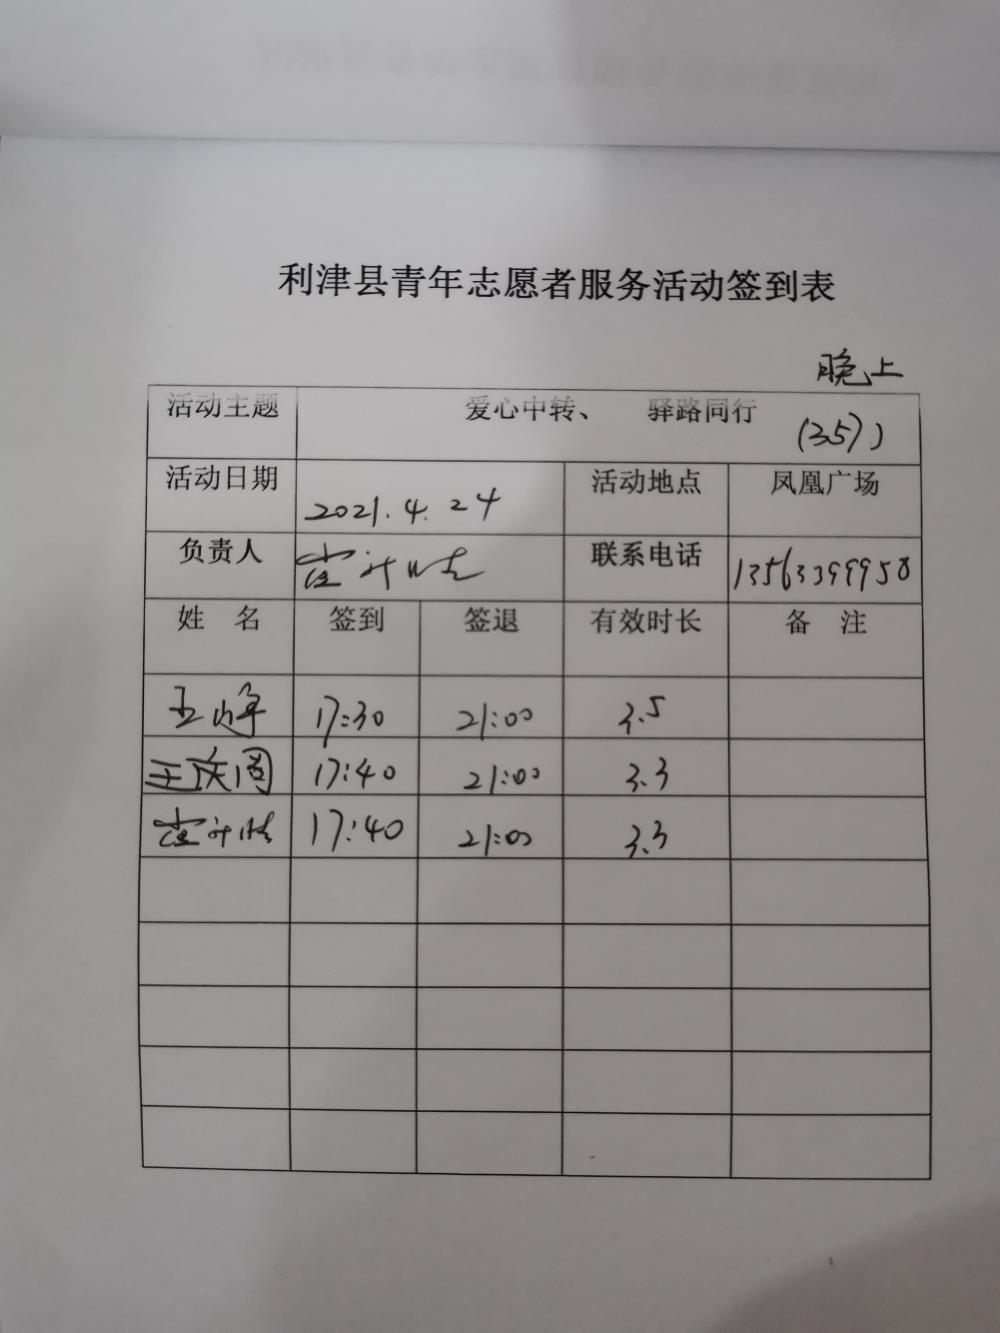 利津县青年志愿者服务活动签到表
晚上
活动主题 爱心中转、 驿路同行 (357)
活动日期 2021.4.24 活动地点 凤凰广场
负责人 联系电话 13563399958
姓 名 签到 签退 有效时长 备 注
王峰 17:30 21:00 3.5
王 17:40 21:00 3.3
17:40 21:00 3.3